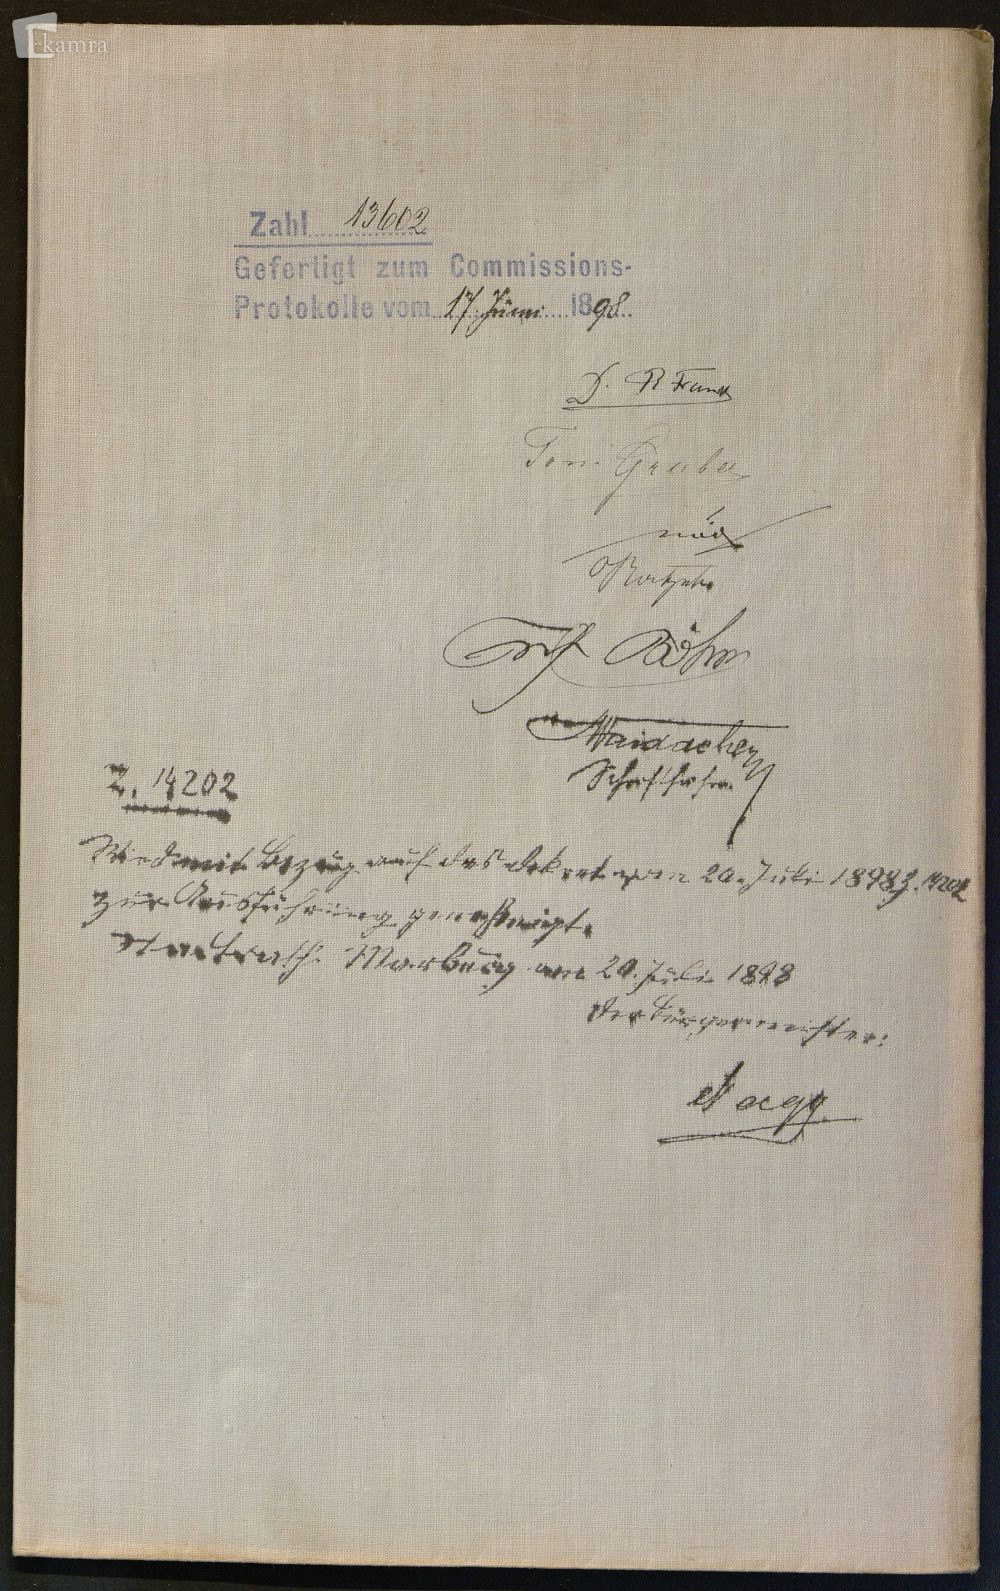 kamra
Zahl 13602
Gefertigt zum Commissions-
Protokolle vom 17. Juni 1898.
D. R Frank
Toni Gruber
Fritz Böhm
Waidacher
Schriftführer
Z. 14202
Wird mit Bezug auf das Dekret vom 20. Juli 1898 Z. 14202
zur Ausführung genehmigt.
Stadtrath Marburg am 20. Juli 1898
Der Bürgermeister:
Nagy